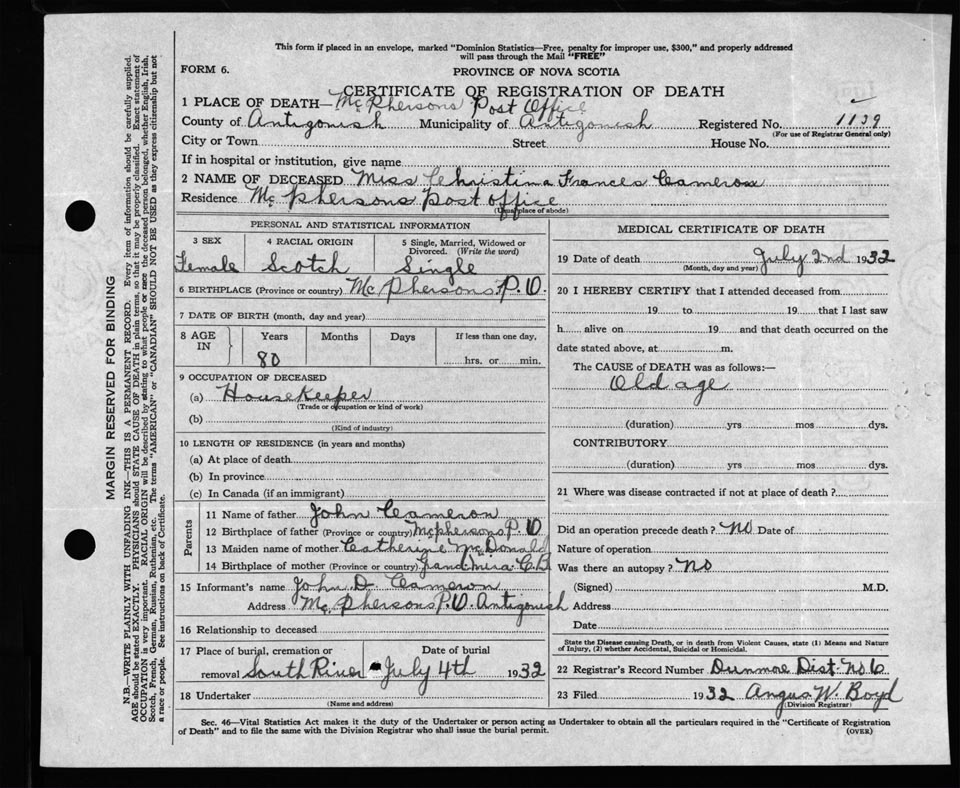 This form if placed in an envelope, marked "Dominion Statistics—Free, penalty for improper use, $300," and properly addressed
will pass through the Mail "FREE"
FORM 6.
PROVINCE OF NOVA SCOTIA
CERTIFICATE OF REGISTRATION OF DEATH
1 PLACE OF DEATH— McPhersons Post Office
County of Antigonish Municipality of Antigonish Registered No. 1139
(For use of Registrar General only)
City or Town Street House No.
If in hospital or institution, give name
2 NAME OF DECEASED Miss Christina Frances Cameron
Residence McPhersons Post office
(Usual place of abode)
PERSONAL AND STATISTICAL INFORMATION
3 SEX 4 RACIAL ORIGIN 5 Single, Married, Widowed or
Divorced. (Write the word)
Female Scotch Single
6 BIRTHPLACE (Province or country) McPhersons P.O.
7 DATE OF BIRTH (month, day and year)
8 AGE Years Months Days If less than one day,
IN 80 hrs. or min.
9 OCCUPATION OF DECEASED
(a) Housekeeper
(Trade or occupation or kind of work)
(b)
(Kind of industry)
10 LENGTH OF RESIDENCE (in years and months)
(a) At place of death
(b) In province
(c) In Canada (if an immigrant)
Parents
11 Name of father John Cameron
12 Birthplace of father (Province or country) Mcphersons P.O
13 Maiden name of mother Catherine McDonald
14 Birthplace of mother (Province or country) Grand Mira C.B
15 Informant's name John D Cameron
Address McPhersons P.O. Antigonish
16 Relationship to deceased
17 Place of burial, cremation or Date of burial
removal South River July 4th 1932
18 Undertaker
(Name and address)
MEDICAL CERTIFICATE OF DEATH
19 Date of death July 2nd 1932
(Month, day and year)
20 I HEREBY CERTIFY that I attended deceased from
19 to 19 that I last saw
h alive on 19 and that death occurred on the
date stated above, at m.
The CAUSE of DEATH was as follows:—
Old age
(duration) yrs mos dys.
CONTRIBUTORY
(duration) yrs mos dys.
21 Where was disease contracted if not at place of death?
Did an operation precede death? No Date of
Nature of operation
Was there an autopsy? No
(Signed) M.D.
Address
Date
State the Disease causing Death, or in death from Violent Causes, state (1) Means and Nature
of Injury, (2) whether Accidental, Suicidal or Homicidal.
22 Registrar's Record Number Dunmore Dist. No 6
23 Filed 1932 Angus W. Boyd
(Division Registrar)
Sec. 46—Vital Statistics Act makes it the duty of the Undertaker or person acting as Undertaker to obtain all the particulars required in the "Certificate of Registration
of Death" and to file the same with the Division Registrar who shall issue the burial permit. (OVER)
MARGIN RESERVED FOR BINDING
N.B.—WRITE PLAINLY WITH UNFADING INK—THIS IS A PERMANENT RECORD. Every item of information should be carefully supplied.
AGE should be stated EXACTLY. PHYSICIANS should STATE CAUSE OF DEATH in plain terms, so that it may be properly classified. Exact statement of
OCCUPATION is very important. RACIAL ORIGIN will be described by stating to what people or race the deceased person belonged, whether English, Irish,
Scotch, French, German, Russian, Ruthenian, etc. The terms "AMERICAN" or "CANADIAN" SHOULD NOT BE USED as they express citizenship but not
a race or people. See instructions on back of Certificate.